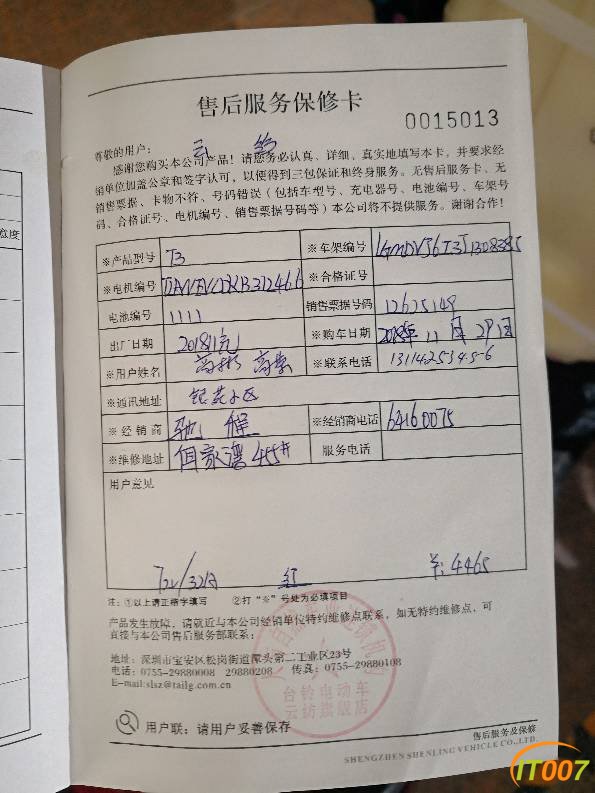 售后服务保修卡
0015013
尊敬的用户：
感谢您购买本公司产品！请您务必认真、详细、真实地填写本卡，并要求经
销单位加盖公章和签字认可，以便得到三包保证和终身服务。无售后服务卡、无
销售票据、卡物不符、号码错误（包括车型号、充电器号、电池编号、车架号
码、合格证号、电机编号、销售票据号码等）本公司将不提供服务。谢谢合作！
※产品型号 T3 ※车架编号
※电机编号 ※合格证号
电池编号 1111 销售票据号码 12625149
出厂日期 201811 ※购车日期 2018年 11月 29日
※用户姓名 ※联系电话 13114253456
※通讯地址 小区
※经销商 ※经销商电话 64160075
※维修地址 455# 服务电话
用户意见
72V/32A 红 羊:4465
注：①以上请正楷字填写 ②打“※”号处为必填项目
产品发生故障，请就近与本公司经销单位特约维修点联系，如无特约维修点，可
直接与本公司售后服务部联系：
地址：深圳市宝安区松岗街道潭头第二工业区23号
电话：0755-29880008 29880208 传真：0755-29880108
E-mail:slsz@tailg.com.cn
台铃电动车
云纺旗舰店
用户联：请用户妥善保存
售后服务及保修
SHENGZHEN SHENLING VEHICLE CO.,LTD.
IT007
意度